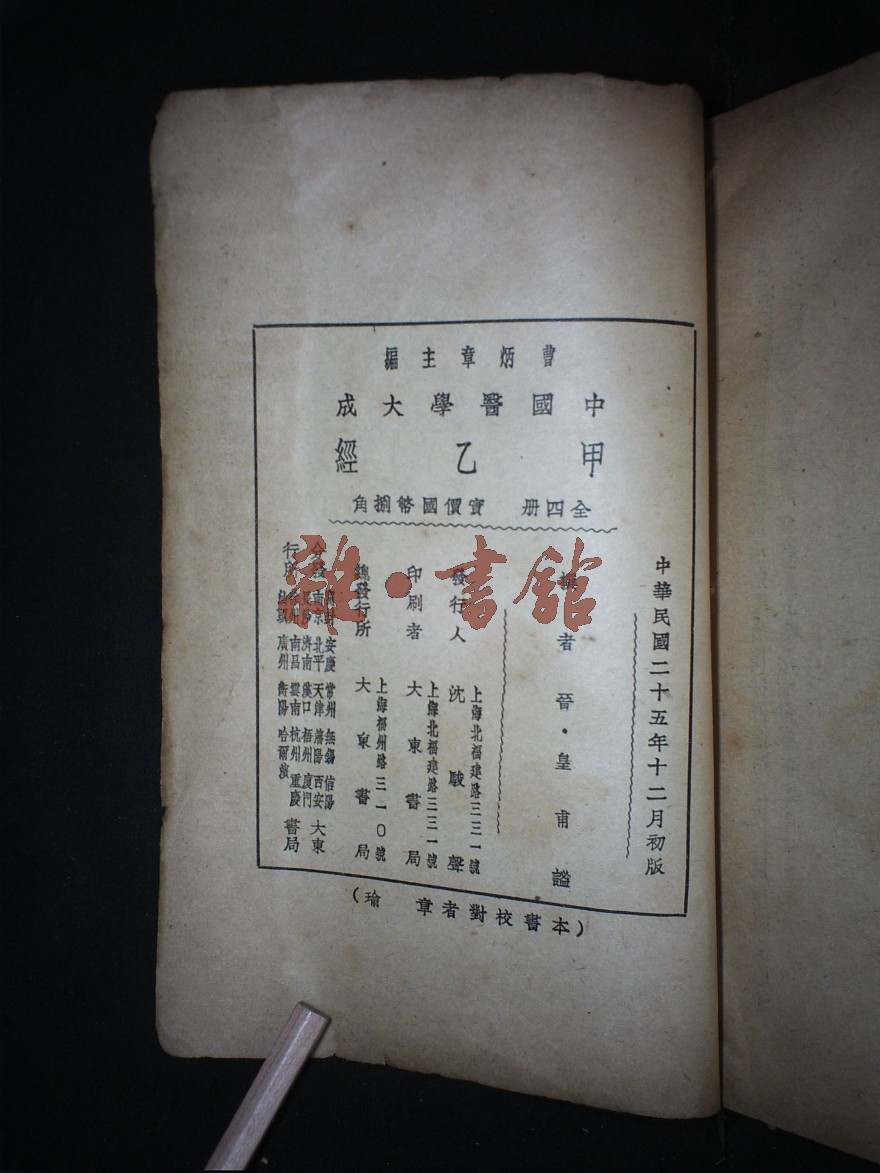 曹炳章主編
中國醫學大成
甲乙經
全四册 實價國幣捌角
中華民國二十五年十二月初版
撰者晉·皇甫謐
發行人 沈駿聲
上海北福建路三三一號
印刷者 大東書局
上海北福建路三三一號
總發行所 大東書局
上海福州路三一〇號
分發行所
安慶 常州 無錫 信陽
南京 北平 天津 瀋陽 西安
長沙 濟南 漢口 梧州 廈門
南昌 雲南 杭州 重慶
廣州 衡陽 哈爾濱
大東書局
(本書校對者章 瑜)
雜·書館